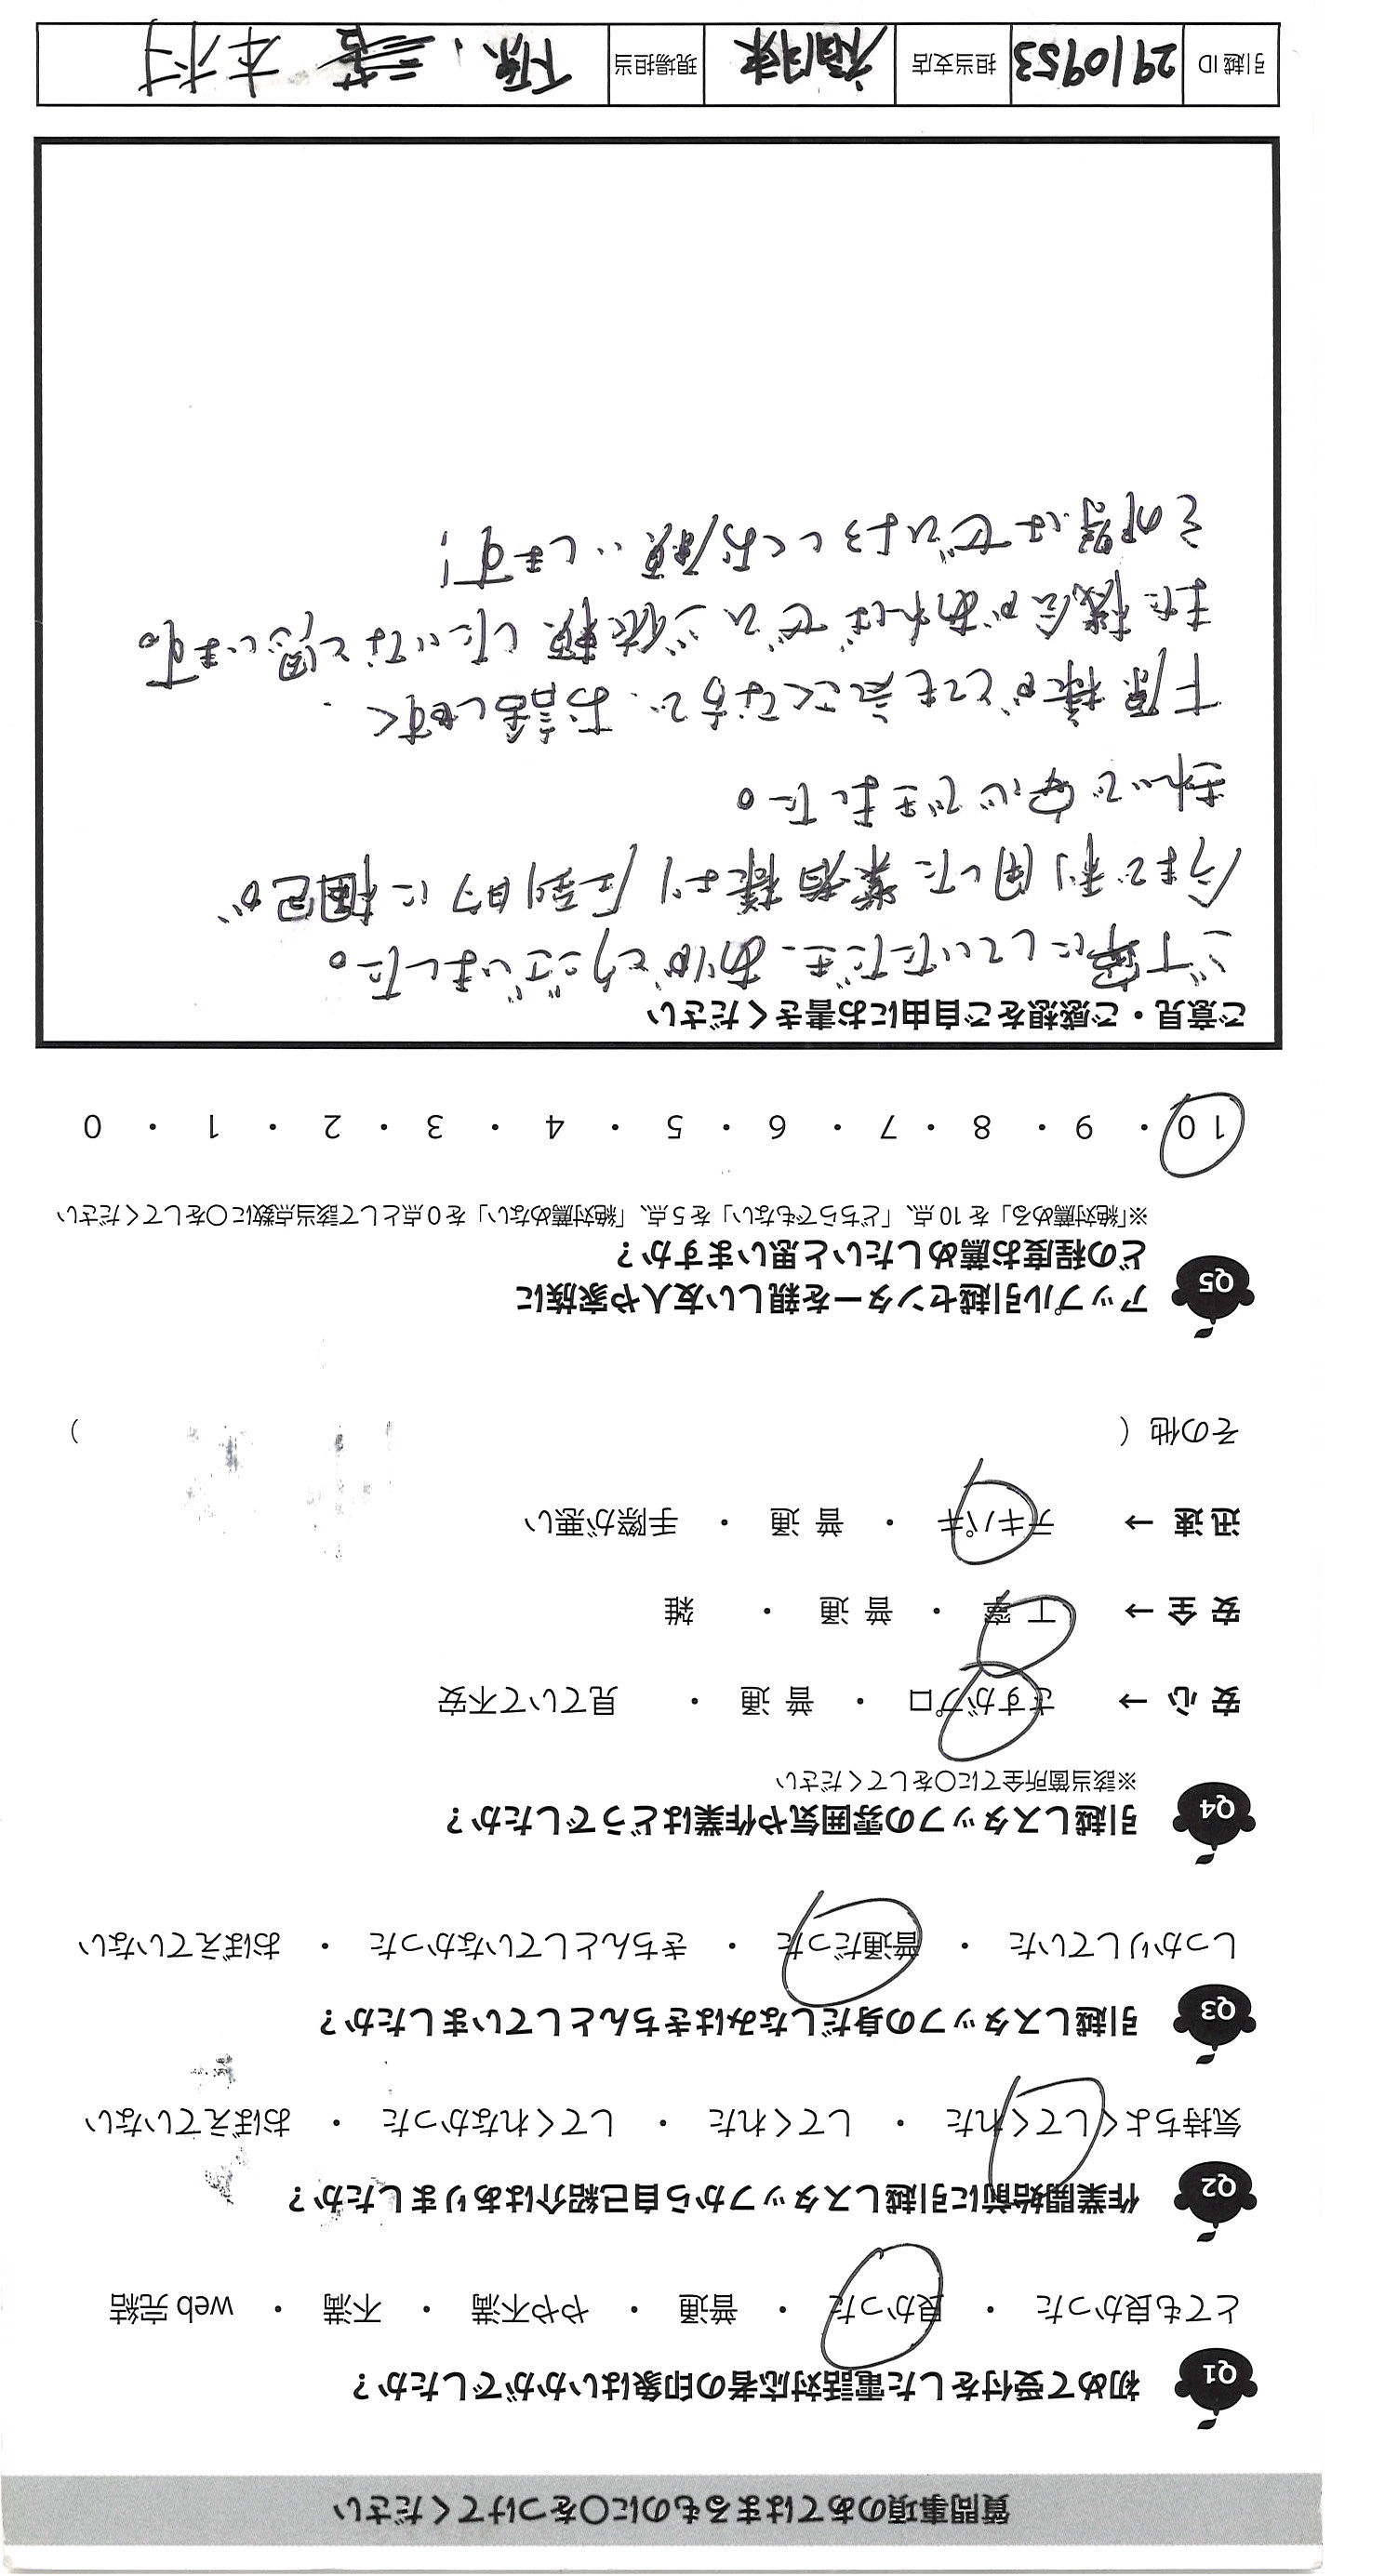 質問事項のあてはまるものに○をつけてください
Q1 初めて受付をした電話対応者の印象はいかがでしたか？
とても良かった ・ 良かった ・ 普通 ・ やや不満 ・ 不満 ・ web 完結
Q2 作業開始前に引越しスタッフから自己紹介はありましたか？
気持ちよくしてくれた ・ してくれた ・ してくれなかった ・ おぼえていない
Q3 引越しスタッフの身だしなみはきちんとしていましたか？
しっかりしていた ・ 普通だった ・ きちんとしていなかった ・ おぼえていない
Q4 引越しスタッフの雰囲気や作業はどうでしたか？
※該当箇所全てに○をしてください
安 心 → さすがプロ ・ 普 通 ・ 見ていて不安
安 全 → 丁 寧 ・ 普 通 ・ 雑
迅 速 → テキパキ ・ 普 通 ・ 手際が悪い
その他（ ）
Q5 アップル引越センターを親しい友人や家族に
どの程度お薦めしたいと思いますか？
※「絶対薦める」を 10 点、「どちらでもない」を 5 点、「絶対薦めない」を 0 点として該当点数に○をしてください
10 ・ 9 ・ 8 ・ 7 ・ 6 ・ 5 ・ 4 ・ 3 ・ 2 ・ 1 ・ 0
ご意見・ご感想をご自由にお書きください
ご丁寧にしていただき、ありがとうございました。
今まで利用した業者様より圧倒的に梱包が
きれいで安心できました。
下原様がとても気さくな方で、お話しやすく、
また機会があればぜひご依頼したいなと思います。
その際はぜひよろしくお願いします!
引越 ID 2910953 担当支店 福岡東 現場担当 下原、三善 木村